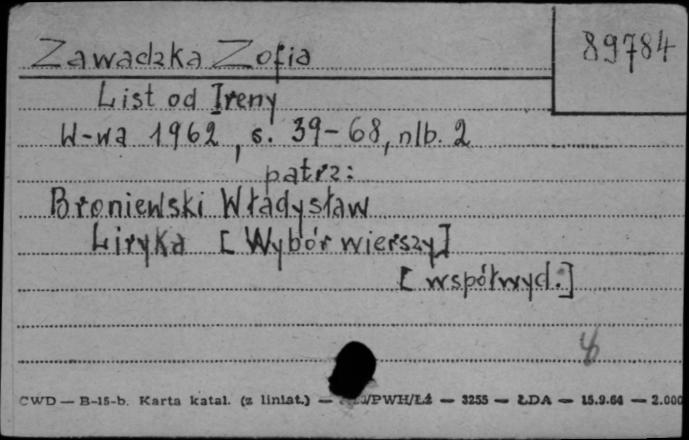 Zawadzka Zofia
89784
List od Ireny
W-wa 1962, s. 39-68, nlb. 2
patrz:
Broniewski Władysław
Liryka [Wybór wierszy]
[współwyd.]
CWD — B-15-b. Karta katal. (z liniat.) — /PWH/Łź — 3255 — ŁDA — 15.9.64 — 2.000